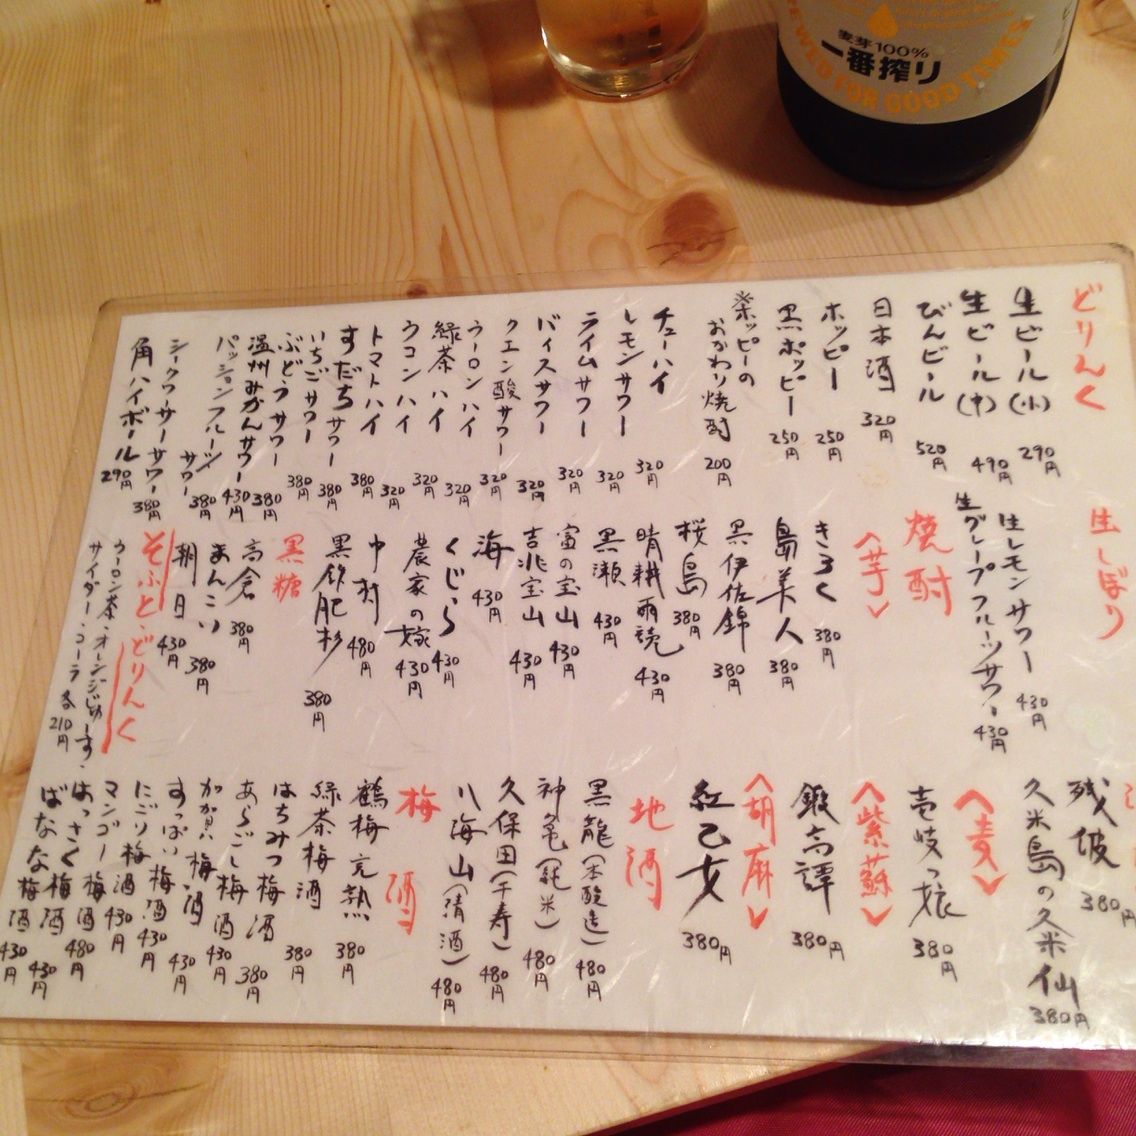 麦芽100%
一番搾り
FOR GOOD TIMES
どりんく
生ビール(小) 290円
生ビール(中) 490円
びんビール 520円
日本酒 320円
ホッピー 250円
黒ホッピー 250円
※ホッピーの
おかわり焼酎 200円
チューハイ 320円
レモンサワー 320円
ライムサワー 320円
バイスサワー 320円
クエン酸サワー 320円
ウーロンハイ 320円
緑茶ハイ 320円
ウコンハイ 320円
トマトハイ 380円
すだちサワー 380円
いちごサワー 380円
ぶどうサワー 380円
温州みかんサワー 430円
パッションフルーツサワー 380円
シークワーサーサワー 380円
角ハイボール 290円
生しぼり
生レモンサワー 430円
生グレープフルーツサワー 430円
焼酎
<芋>
きろく 380円
島美人 380円
黒伊佐錦 380円
桜島 380円
晴耕雨読 430円
黒瀬 430円
富の宝山 430円
吉兆宝山 430円
海 430円
くじら 430円
農家の嫁 430円
中村 480円
黒飫肥杉 380円
黒糖
高倉 380円
まんこい 380円
朝日 430円
そふとどりんく
ウーロン茶・オレンジじゅーす・
サイダー・コーラ 各210円
残波 380円
久米島の久米仙 380円
<麦>
壱岐っ娘 380円
<紫蘇>
鍛高譚 380円
<胡麻>
紅乙女 380円
地酒
黒龍(本醸造) 480円
神亀(純米) 480円
久保田(千寿) 480円
八海山(清酒) 480円
梅酒
鶴梅完熟 380円
緑茶梅酒 380円
はちみつ梅酒 380円
あらごし梅酒 430円
加賀梅酒 430円
すっぱい梅酒 430円
にごり梅酒 430円
マンゴー梅酒 480円
はっさく梅酒 430円
ばなな梅酒 430円